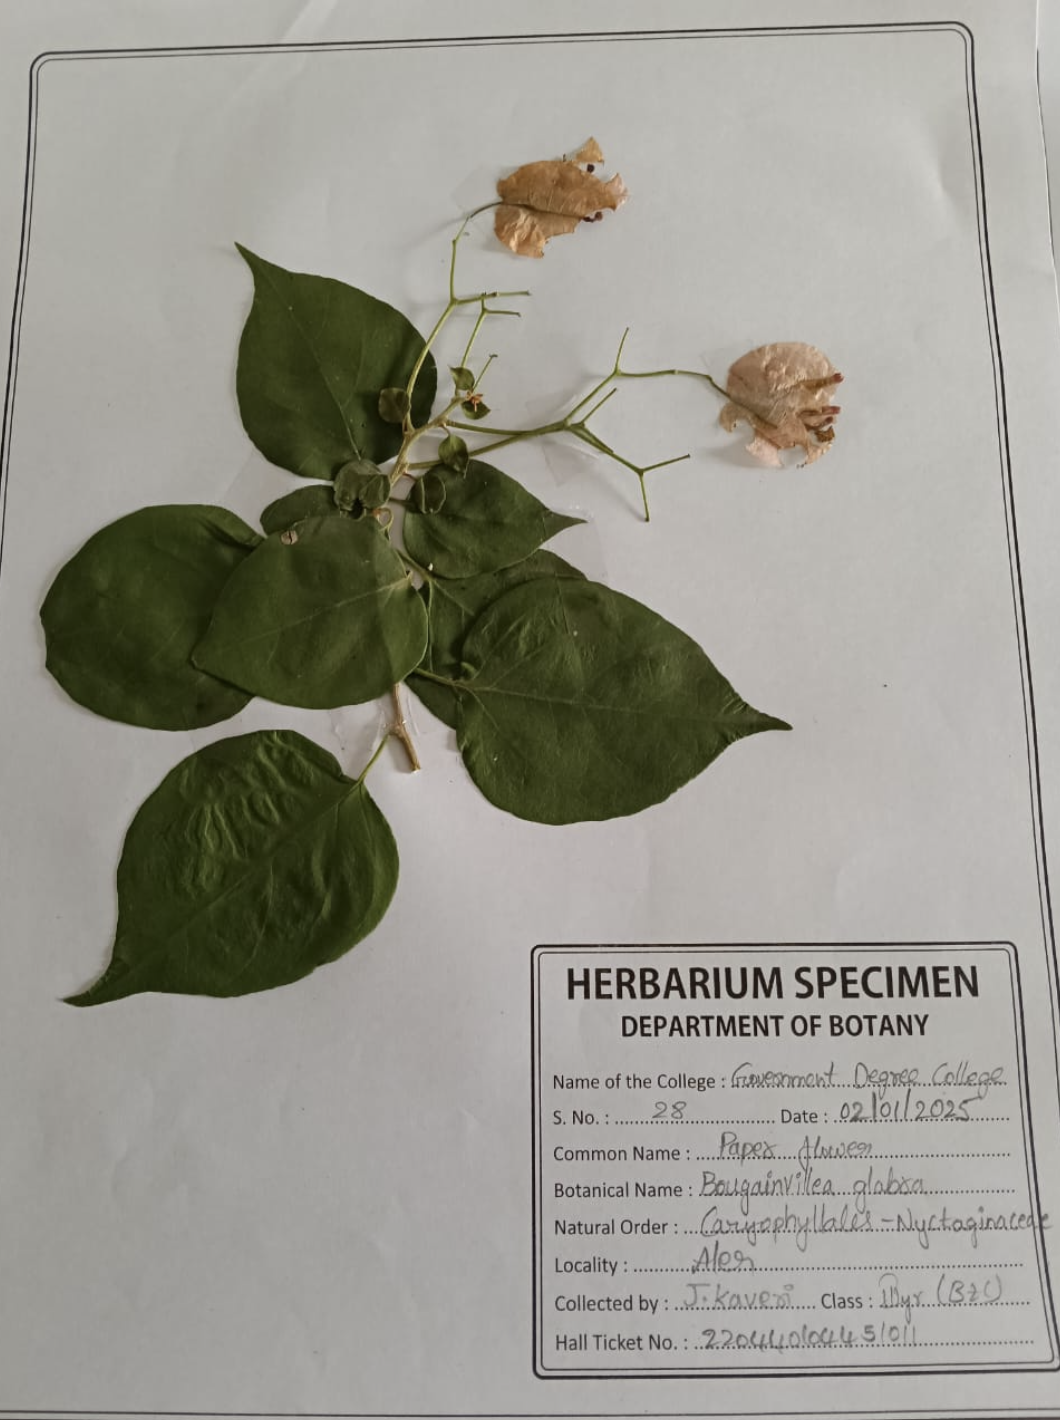 HERBARIUM SPECIMEN
DEPARTMENT OF BOTANY
Name of the College : Government Degree College
S. No. : 28 Date : 02/01/2025
Common Name : Paper flower
Botanical Name : Bougainvillea glabra
Natural Order : Caryophyllales - Nyctaginaceae
Locality : Aler
Collected by : J. Kaveri Class : yr (BZC)
Hall Ticket No. :